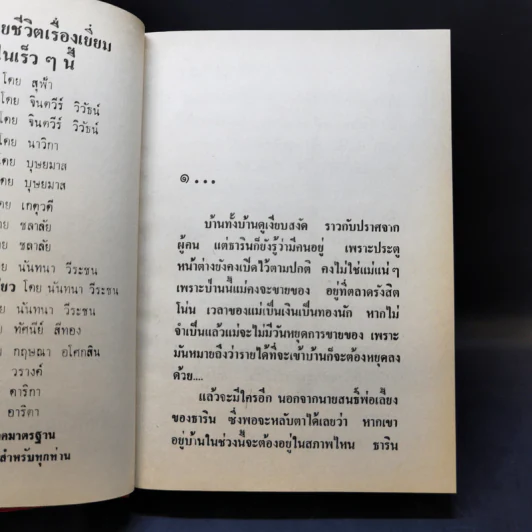 ยชีวิตเรื่องเยี่ยม
นเร็ว ๆ นี้
โดย สุฟ้า
โดย จินตวีร์ วิวัธน์
โดย จินตวีร์ วิวัธน์
โดย นาวิกา
โดย บุษยมาส
โดย บุษยมาส
โดย เกตุวดี
ย ชลาลัย
ชลาลัย
นันทนา วีระชน
ยว โดย นันทนา วีระชน
นันทนา วีระชน
ทัศนีย์ สีทอง
กฤษณา อโศกสิน
วรางค์
ดาริกา
อาริตา
ดมาตรฐาน
สำหรับทุกท่าน
๑ ...
บ้านทั้งบ้านดูเงียบสงัด ราวกับปราศจาก
ผู้คน แต่ธารินก็ยังรู้ว่ามีคนอยู่ เพราะประตู
หน้าต่างยังคงเปิดไว้ตามปกติ คงไม่ใช่แม่แน่ ๆ
เพราะป่านนี้แม่คงจะขายของ อยู่ที่ตลาดรังสิต
โน่น เวลาของแม่เป็นเงินเป็นทองนัก หากไม่
จำเป็นแล้วแม่จะไม่มีวันหยุดการขายของ เพราะ
มันหมายถึงว่ารายได้ที่จะเข้าบ้านก็จะต้องหยุดลง
ด้วย....
แล้วจะมีใครอีก นอกจากนายสนธิ์พ่อเลี้ยง
ของธาริน ซึ่งพอจะหลับตาได้เลยว่า หากเขา
อยู่บ้านในช่วงนี้จะต้องอยู่ในสภาพไหน ธาริน